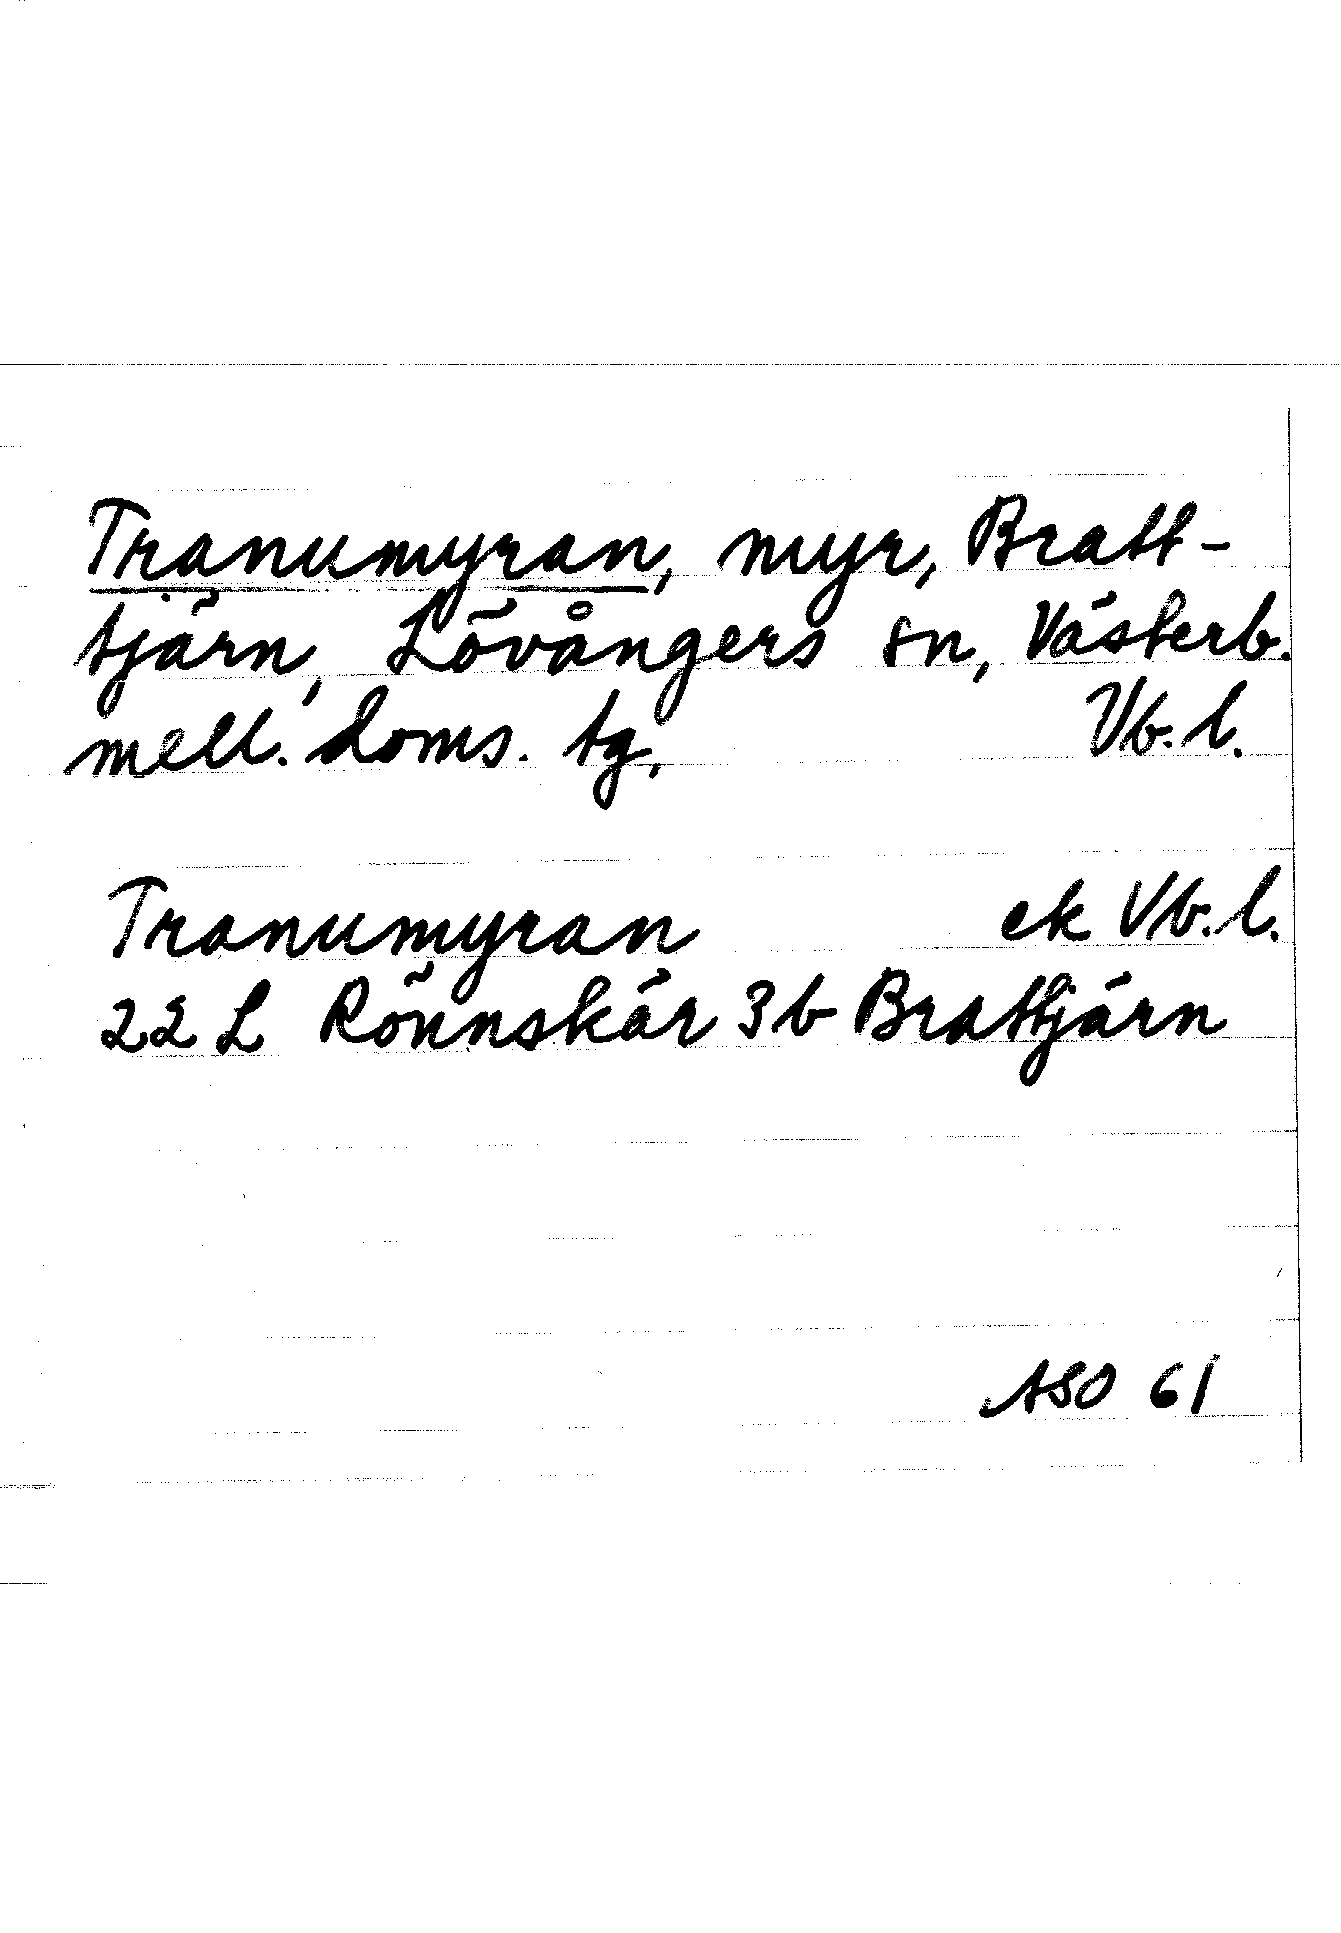 Tranumyran, myr, Bratt-
tjärn, Lövångers sn, Västerb.
mell. doms. tg, Vb. l.
Tranumyran ek Vb. l.
22 L Rönnskär 3b Brattjärn
ASO 61